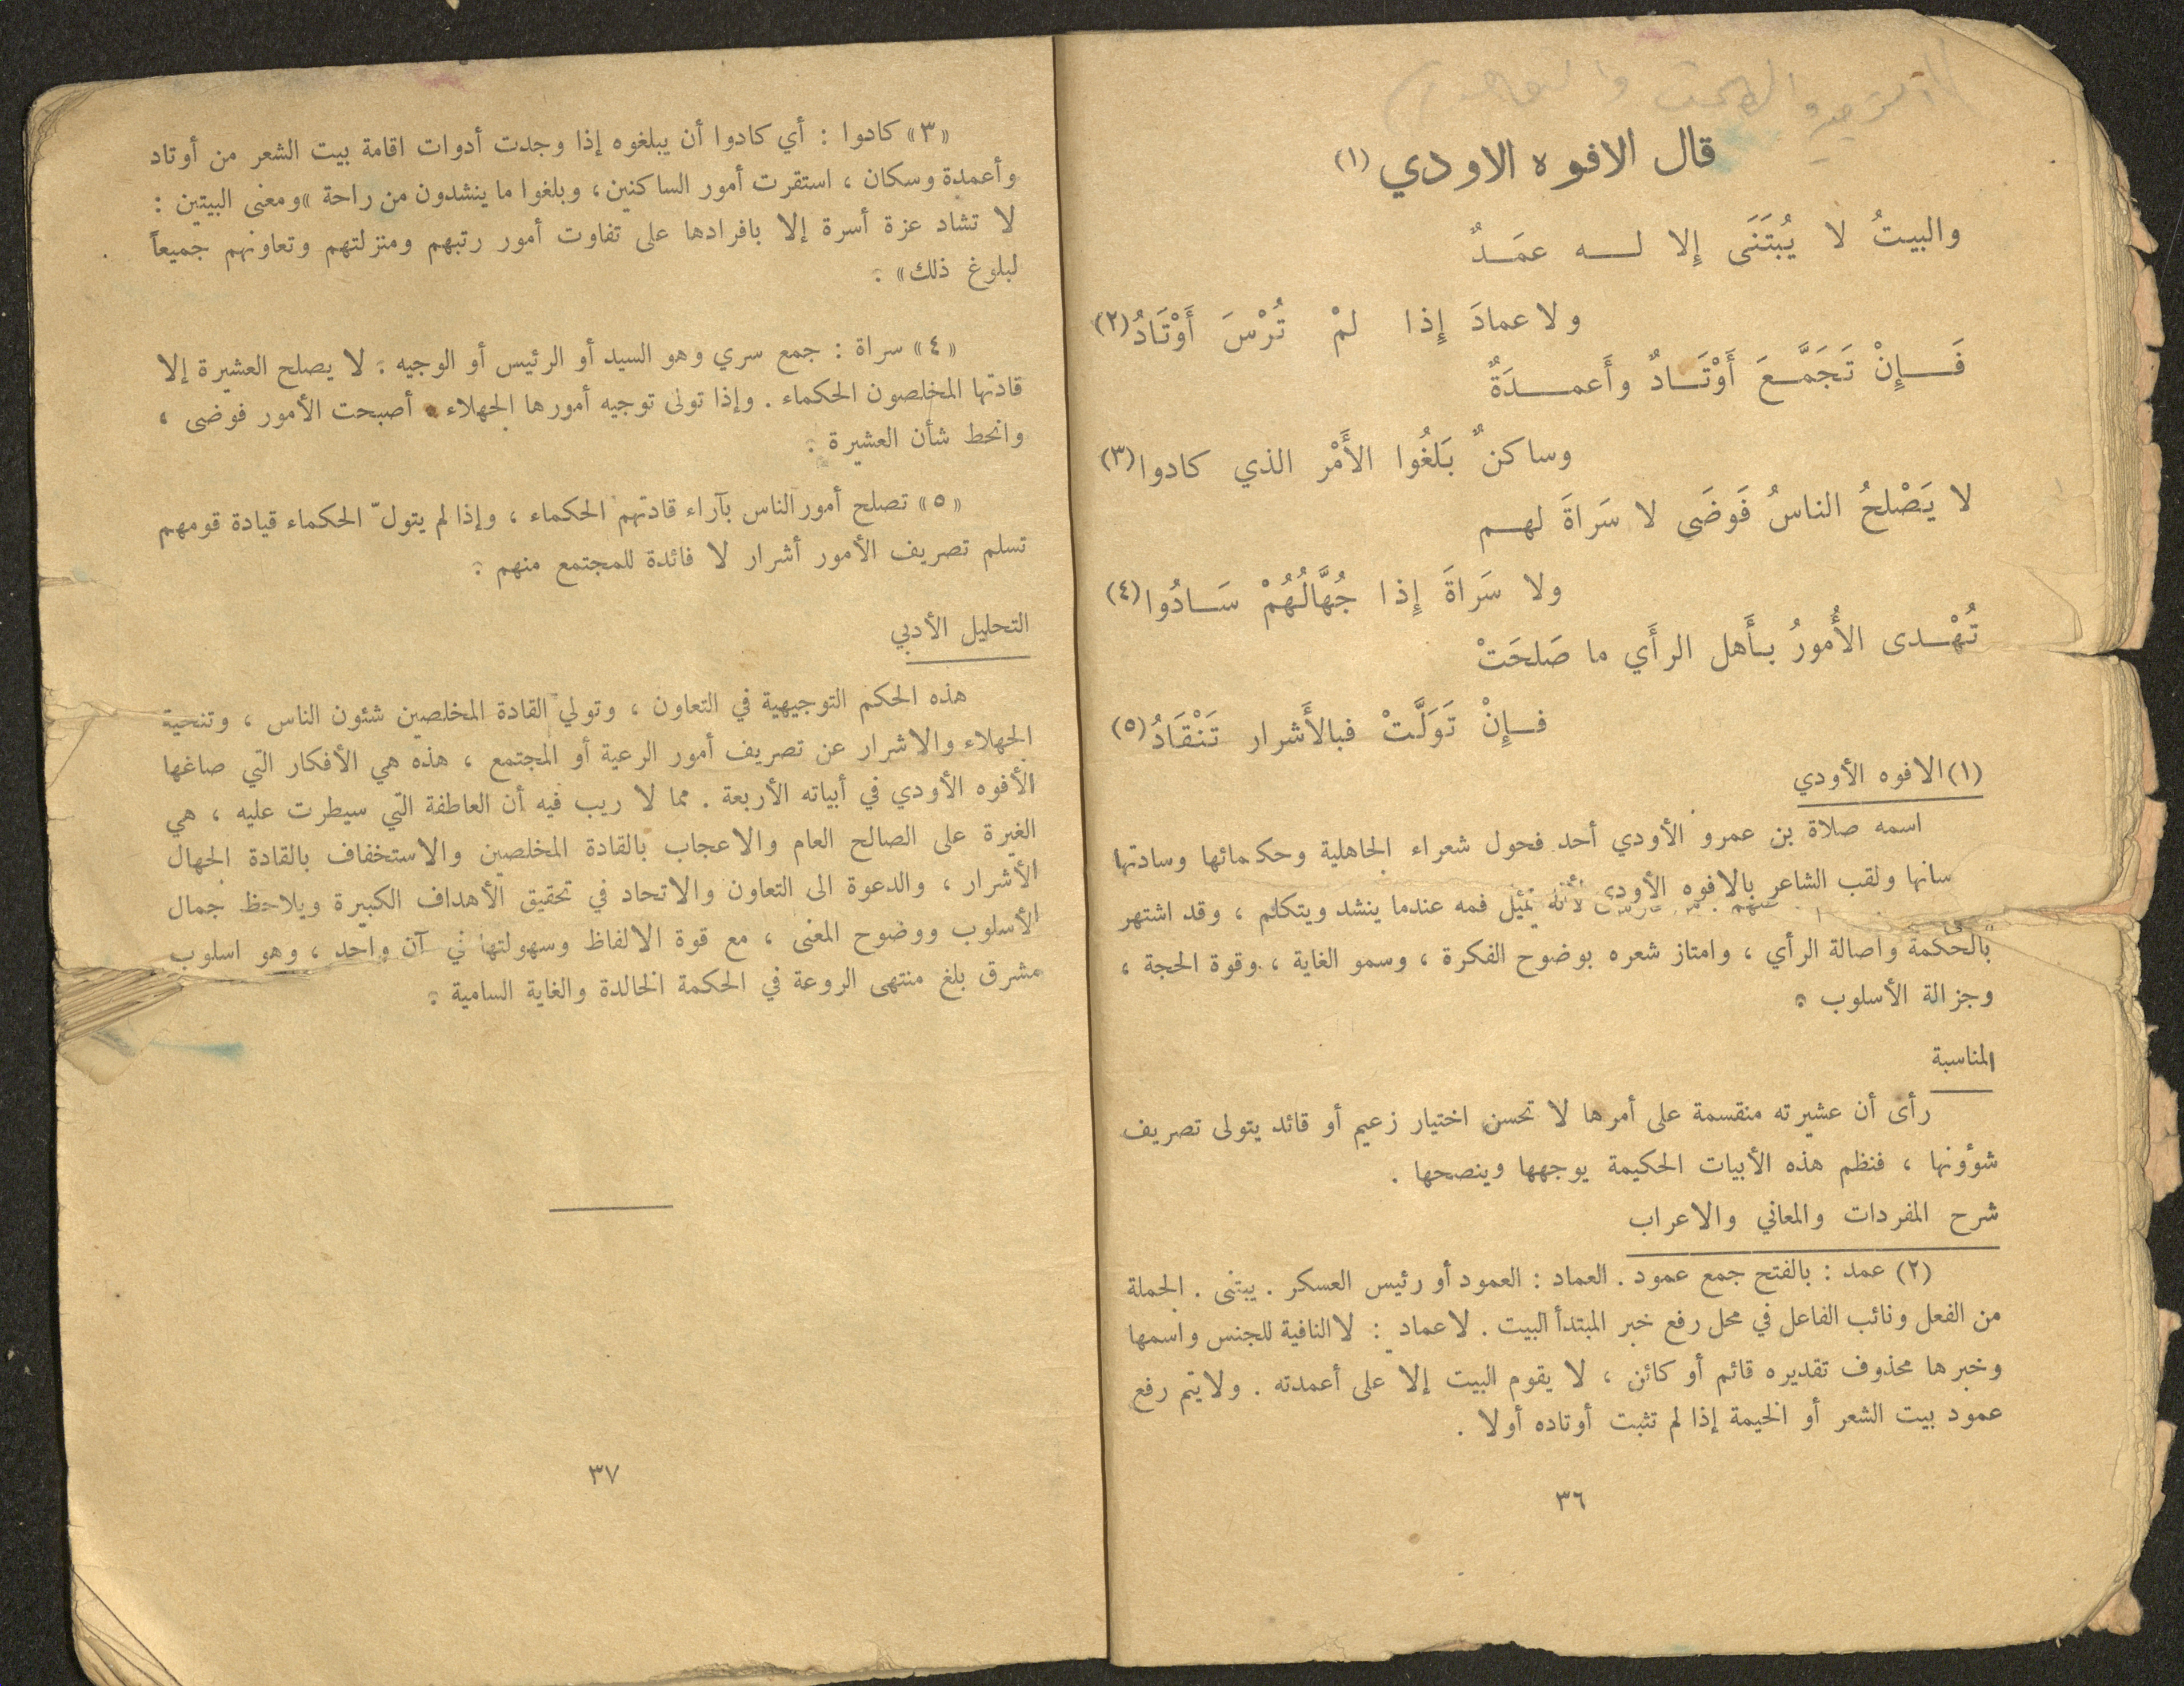 قال الافوه الاودي (١)
والبيتُ لا يُبتَنَى إِلا لـه عمَـدٌ
ولا عمادَ إِذا لمْ تُرْسَ أَوْتَادُ (٢)
فَـإِنْ تَجَمَّـعَ أَوْتَـادٌ وأَعمـدَةٌ
وساكنٌ بَلَغُوا الأَمْر الذي كادوا (٣)
لا يَصْلحُ الناسُ فَوضَى لا سَراةَ لهـم
ولا سَراةَ إِذا جُهَّالُهُمْ سَـادُوا (٤)
تُهْـدى الأُمورُ بـأَهل الرأَي ما صَلحَتْ
فـإِنْ تَوَلَّتْ فبالأَشرار تَنْقَادُ (٥)
(١) الافوه الأودي
اسمه صلاة بن عمرو الأودي أحد فحول شعراء الجاهلية وحكمائها وسادتها
سانها ولقب الشاعر بالافوه الأودي لأنه يميل فمه عندما ينشد ويتكلم ، وقد اشتهر
بالحكمة واصالة الرأي ، وامتاز شعره بوضوح الفكرة ، وسمو الغاية ، وقوة الحجة ،
وجزالة الأسلوب .
المناسبة
رأى أن عشيرته منقسمة على أمرها لا تحسن اختيار زعيم أو قائد يتولى تصريف
شؤونها ، فنظم هذه الأبيات الحكيمة يوجهها وينصحها .
شرح المفردات والمعاني والاعراب
(٢) عمد : بالفتح جمع عمود . العماد : العمود أو رئيس العسكر . يبتنى . الجملة
من الفعل ونائب الفاعل في محل رفع خبر المبتدأ البيت . لا عماد : لا النافية للجنس واسمها
وخبرها محذوف تقديره قائم أو كائن ، لا يقوم البيت إلا على أعمدته . ولا يتم رفع
عمود بيت الشعر أو الخيمة إذا لم تثبت أوتاده أولا .
٣٦
«٣» كادوا : أي كادوا أن يبلغوه إذا وجدت أدوات اقامة بيت الشعر من أوتاد
وأعمدة وسكان ، استقرت أمور الساكنين ، وبلغوا ما ينشدون من راحة «ومعنى البيتين :
لا تشاد عزة أسرة إلا بافرادها على تفاوت أمور رتبهم ومنزلتهم وتعاونهم جميعاً
لبلوغ ذلك» .
«٤» سراة : جمع سري وهو السيد أو الرئيس أو الوجيه . لا يصلح العشيرة إلا
قادتها المخلصون الحكماء . وإذا تولى توجيه أمورها الجهلاء أصبحت الأمور فوضى ،
وانحط شأن العشيرة .
«٥» تصلح أمور الناس بآراء قادتهم الحكماء ، وإذا لم يتولّ الحكماء قيادة قومهم
تسلم تصريف الأمور أشرار لا فائدة للمجتمع منهم .
التحليل الأدبي
هذه الحكم التوجيهية في التعاون ، وتولي القادة المخلصين شئون الناس ، وتنحية
الجهلاء والاشرار عن تصريف أمور الرعية أو المجتمع ، هذه هي الأفكار التي صاغها
الأفوه الأودي في أبياته الأربعة . مما لا ريب فيه أن العاطفة التي سيطرت عليه ، هي
الغيرة على الصالح العام والاعجاب بالقادة المخلصين والاستخفاف بالقادة الجهال
الأشرار ، والدعوة الى التعاون والاتحاد في تحقيق الأهداف الكبيرة ويلاحظ جمال
الأسلوب ووضوح المعنى ، مع قوة الالفاظ وسهولتها في آن واحد ، وهو اسلوب
مشرق بلغ منتهى الروعة في الحكمة الخالدة والغاية السامية .
٣٧